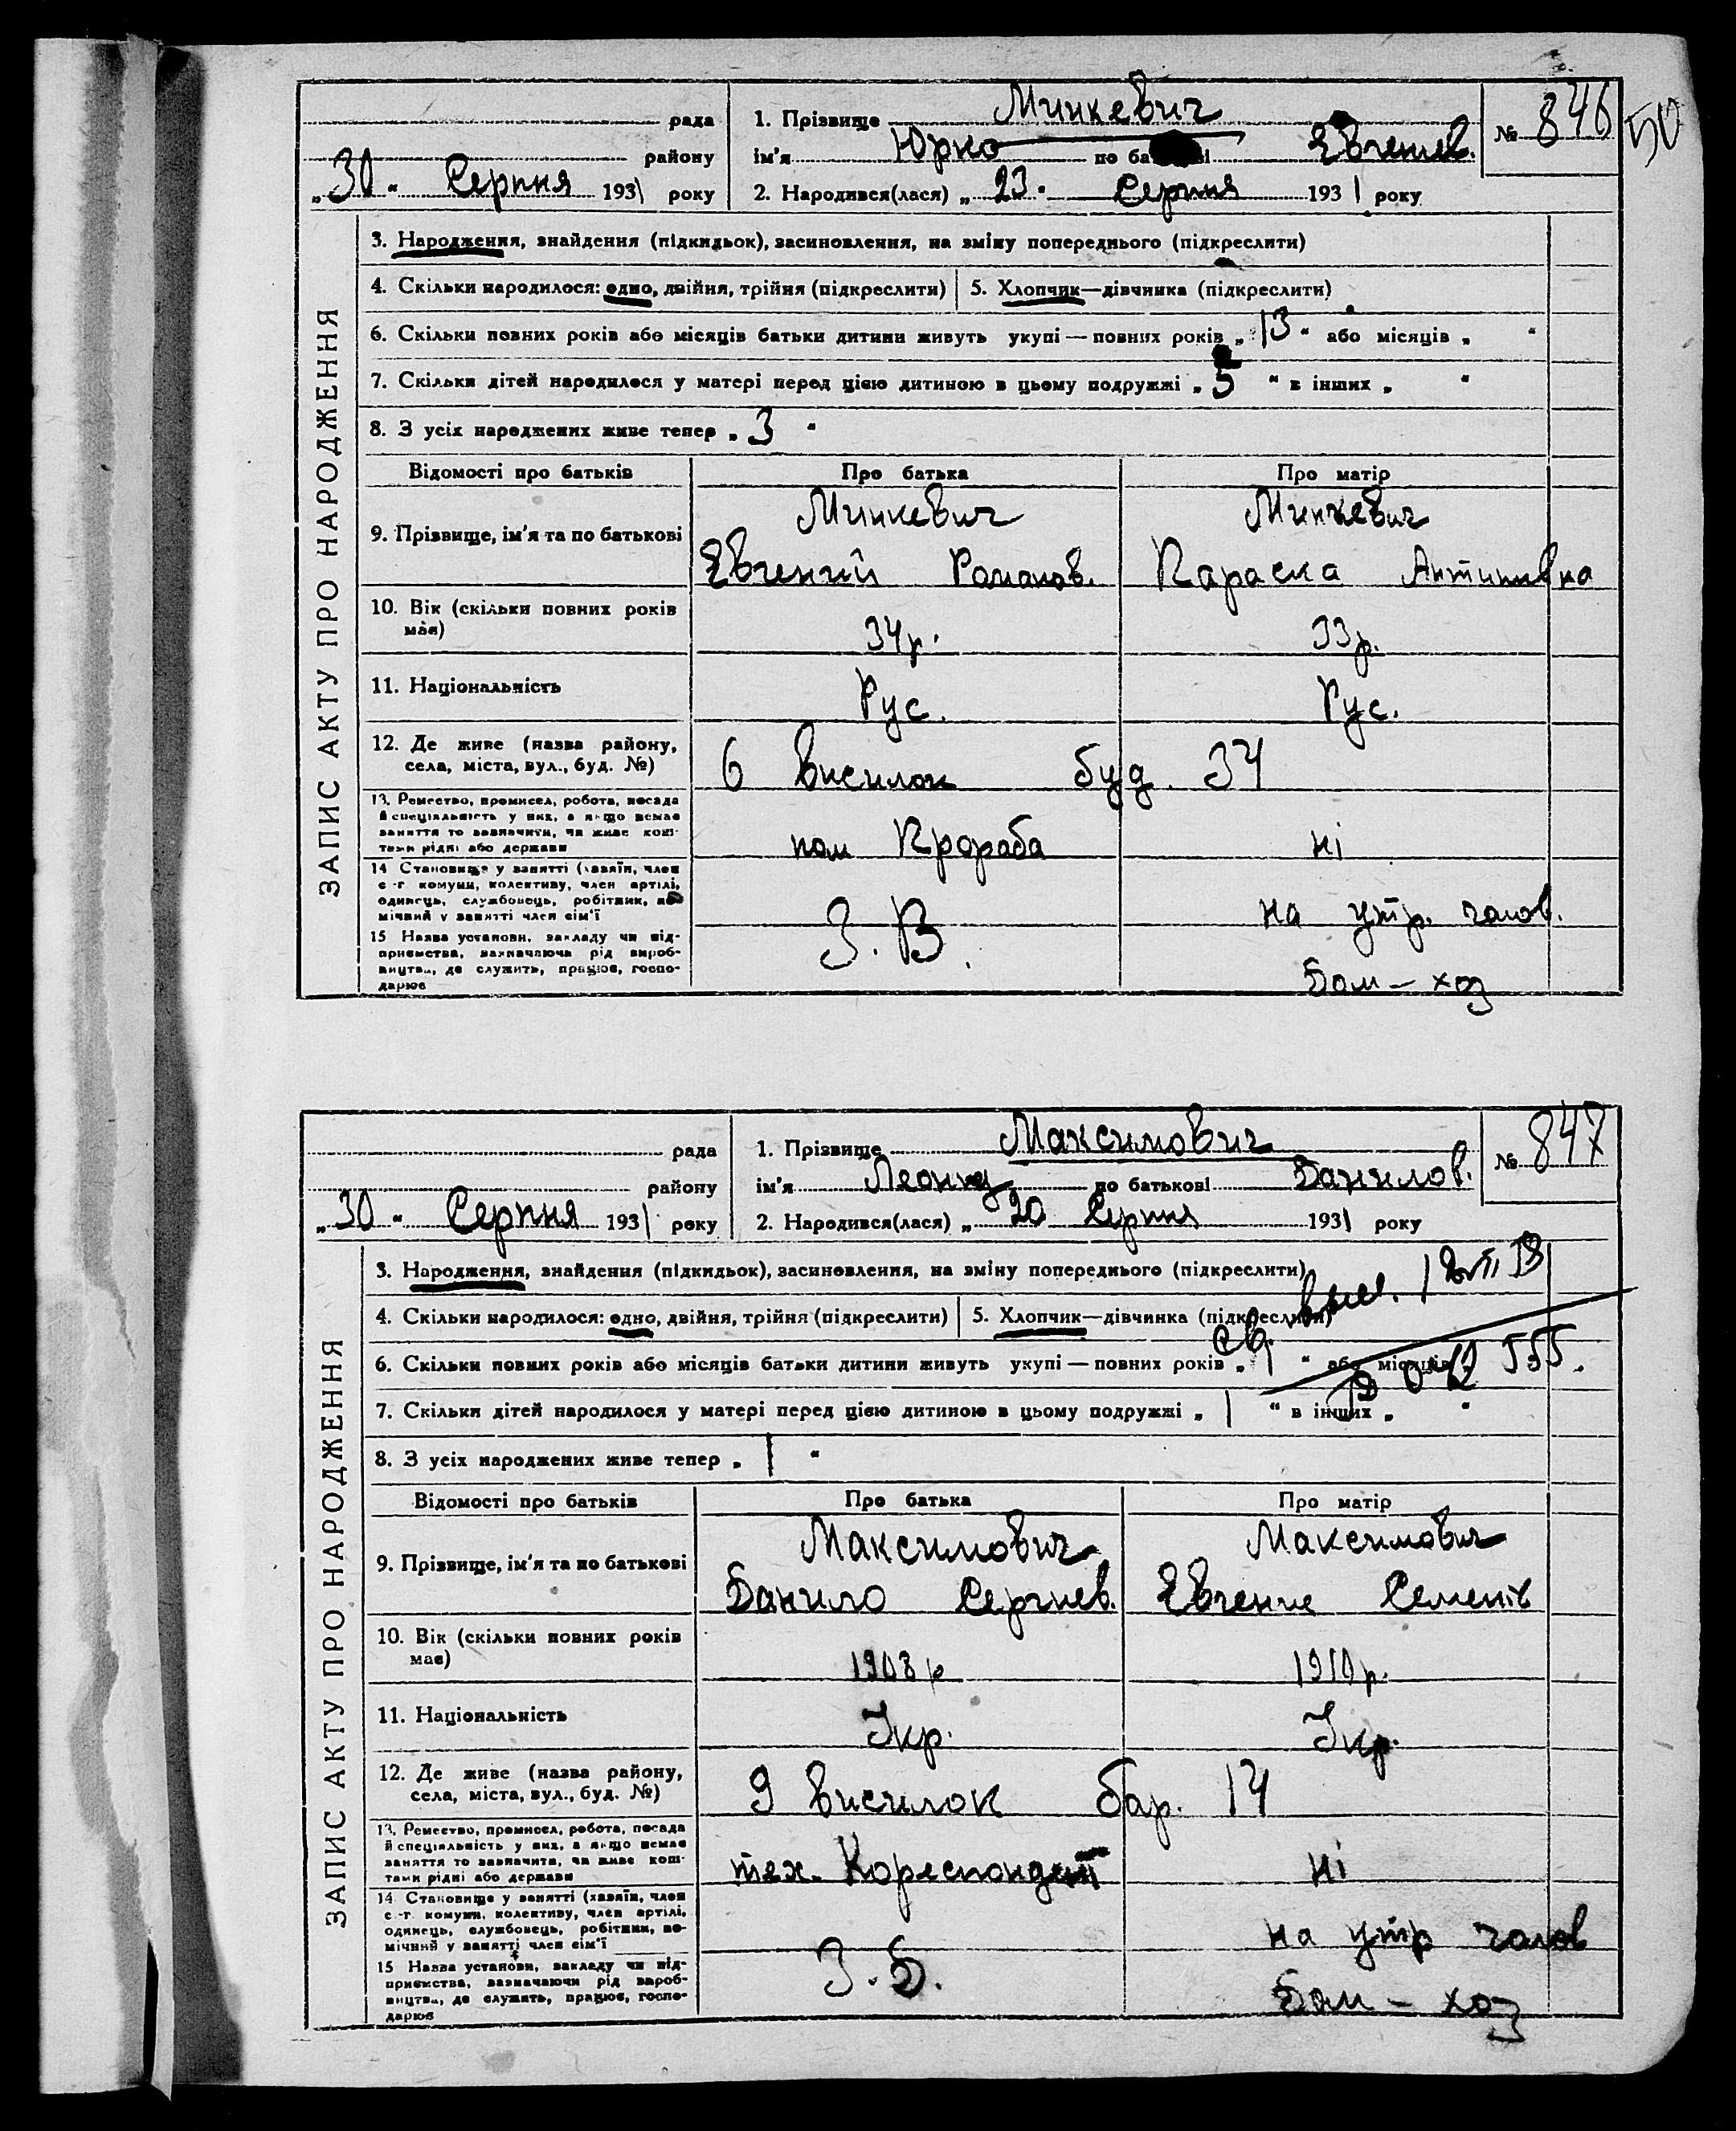 рада
району
„30" Серпня 1931 року
1. Прізвище Минкевич
ім'я Юрко по батькові Евгенев.
2. Народився(лася) „23" Серпня 1931 року
№ 846
50
ЗАПИС АКТУ ПРО НАРОДЖЕННЯ
3. Народження, знайдення (підкидьок), засиновлення, на зміну попереднього (підкреслити)
4. Скільки народилося: одно, двійня, трійня (підкреслити) 5. Хлопчик—дівчинка (підкреслити)
6. Скільки повних років або місяців батьки дитини живуть укупі — повних років „13" або місяців „ "
7. Скільки дітей народилося у матері перед цією дитиною в цьому подружжі „5" в інших „ "
8. З усіх народжених живе тепер „3"
Відомості про батьків Про батька Про матір
9. Прізвище, ім'я та по батькові
Минкевич Минкевич
Евгений Романов. Параска Антипивна
10. Вік (скільки повних років має)
34р. 33р.
11. Національність
Рус. Рус.
12. Де живе (назва району,
села, міста, вул., буд. №)
6 висилок буд. 34
13. Ремество, промисел, робота, посада
й спеціяльність у них, а якщо немає
заняття то зазначити, чи живе кош-
тами рідні або держави
пом Прораба ні
14 Становище у занятті (хазяїн, член
с.-г. комуни, колективу, член артілі,
одинець, службовець, робітник, по-
мічний у занятті член сім'ї
на утр. чолов.
15 Назва установи, закладу чи під-
приємства, зазначаючи рід вироб-
ництва, де служить, працює, госпо-
дарює
З. В. Дом — хоз
рада
району
„30" Серпня 1931 року
1. Прізвище Максимович
ім'я Леонид по батькові Данилов.
2. Народився(лася) „20 Серпня 1931 року
№ 847
ЗАПИС АКТУ ПРО НАРОДЖЕННЯ
3. Народження, знайдення (підкидьок), засиновлення, на зміну попереднього (підкреслити)
4. Скільки народилося: одно, двійня, трійня (підкреслити) 5. Хлопчик—дівчинка (підкреслити)
6. Скільки повних років або місяців батьки дитини живуть укупі — повних років „ " або місяців „
7. Скільки дітей народилося у матері перед цією дитиною в цьому подружжі „1 " в інших „ "
8. З усіх народжених живе тепер „1 "
Відомості про батьків Про батька Про матір
9. Прізвище, ім'я та по батькові
Максимович Максимович
Данило Сергиев. Евгение Семенів
10. Вік (скільки повних років має)
1908 р 1910 р.
11. Національність
Укр. Укр.
12. Де живе (назва району,
села, міста, вул., буд. №)
9 висилок бар. 14
13. Ремество, промисел, робота, посада
й спеціяльність у них, а якщо немає
заняття то зазначити, чи живе кош-
тами рідні або держави
тех. Кореспондент ні
14 Становище у занятті (хазяїн, член
с.-г. комуни, колективу, член артілі,
одинець, службовець, робітник, по-
мічний у занятті член сім'ї
на утр чолов
15 Назва установи, закладу чи під-
приємства, зазначаючи рід вироб-
ництва, де служить, працює, госпо-
дарює
З. Б. Дом — хоз